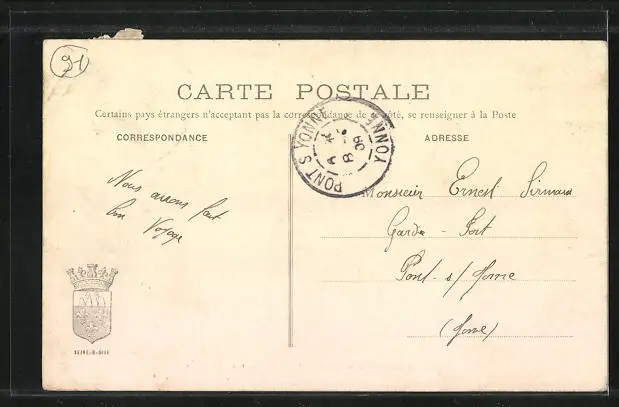 91
CARTE POSTALE
Certains pays étrangers n'acceptant pas la correspondance de ce côté, se renseigner à la Poste
CORRESPONDANCE
ADRESSE
PONT S YONNE
YONNE
8
09
Nous avons fait
bon Voyage
Monsieur Ernest
Garde - Port
Pont s/ Yonne
(Yonne)